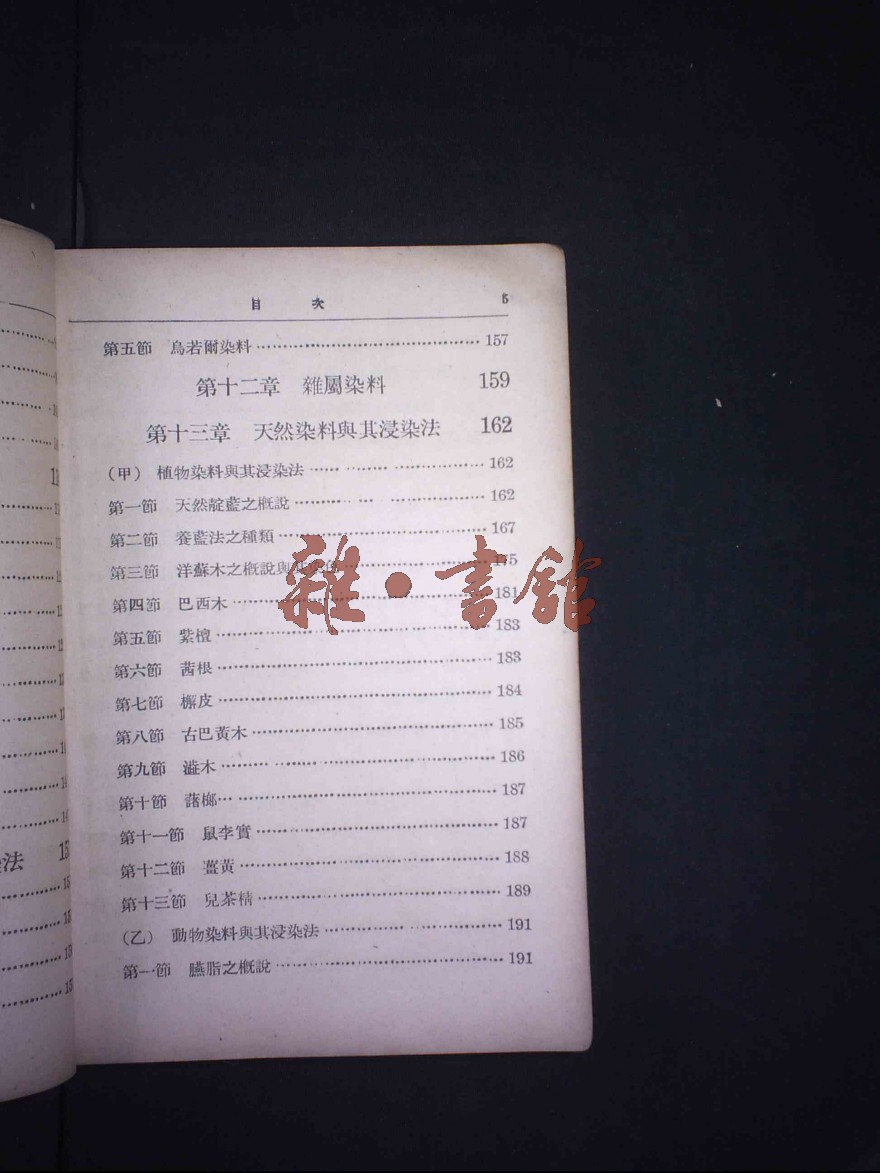 目次 5
第五節 烏若爾染料 157
第十二章 雜屬染料 159
第十三章 天然染料與其浸染法 162
（甲） 植物染料與其浸染法 162
第一節 天然靛藍之概說 162
第二節 養藍法之種類 167
第三節 洋蘇木之概說與其染色 175
第四節 巴西木 181
第五節 紫檀 183
第六節 茜根 183
第七節 槲皮 184
第八節 古巴黃木 185
第九節 溢木 186
第十節 藷榔 187
第十一節 鼠李實 187
第十二節 薑黃 188
第十三節 兒茶精 189
（乙） 動物染料與其浸染法 191
第一節 臙脂之概說 191
雜・書館